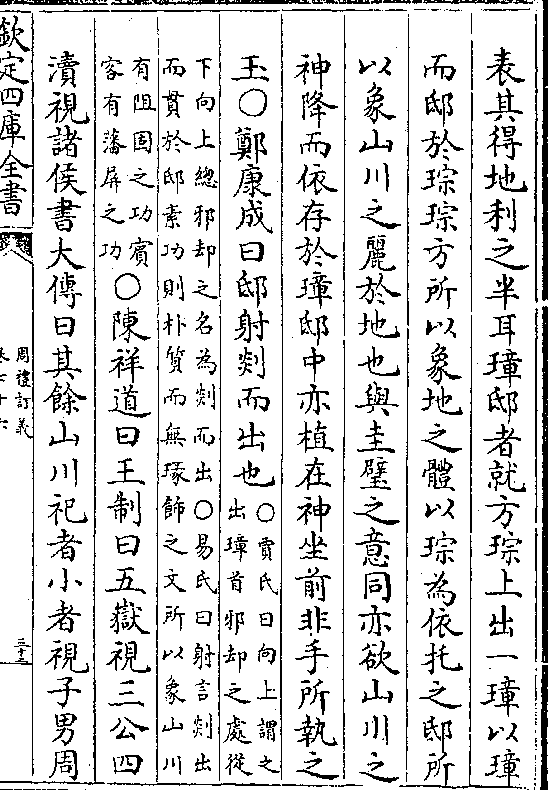 表其得地利之半耳璋邸者就方琮上出一璋以璋
而邸於琮琮方所以象地之體以琮為依托之邸所
以象山川之麗於地也與圭璧之意同亦欲山川之
神降而依存於璋邸中亦植在神坐前非手所執之
玉○鄭康成曰邸射剡而出也
○賈氏曰向上謂之
出璋首邪却之處從
下向上總邪却之名為剡而出○易氏曰射言剡出
而貫於邸素功則朴質而無瑑飾之文所以象山川
有阻固之功賓
客有藩屏之功
○陳祥道曰王制曰五嶽視三公四
瀆視諸侯書大傳曰其餘山川祀者小者視子男周
欽定四庫全書
周禮訂義
卷七十六
三十三